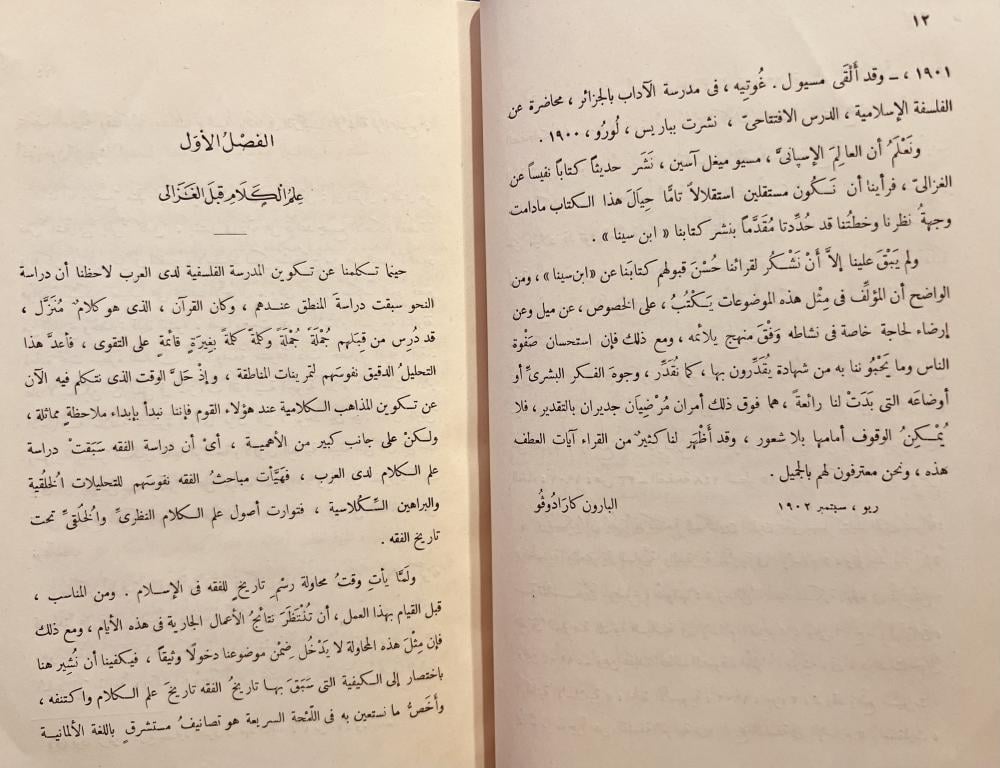 ١٢
١٩٠١ ، ـ وقد أَلْقَى مسيو ل . غُوتِيه ، فى مدرسة الآداب بالجزائر ، محاضرة عن
الفلسفة الإسلامية ، الدرس الافتتاحىّ ، نشرت بباريس ، لُورُو ، ١٩٠٠ .
ونَعْلَمُ أن العالِمَ الإسپانىَّ ، مسيو ميغل آسين ، نَشَر حديثاً كتاباً نفيساً عن
الغزالىّ ، فرأينا أن نَكُون مستقلين استقلالاً تامًّا حِيَالَ هذا الكتاب مادامت
وجهةُ نظرنا وخطتُنا قد حُدِّدتا مُقَدَّماً بنشر كتابنا « ابن سينا » .
ولم يَبْقَ علينا إلاَّ أَنْ نَشْكُر لقرائنا حُسْنَ قبولهم كتابَنا عن «ابن سينا» ، ومن
الواضح أن المؤلِّف فى مِثْل هذه الموضوعات يَكْتُبُ ، على الخصوص ، عن ميل وعن
إرضاء لحاجة خاصة فى نشاطه وَفْقَ منهج يلائمه ، ومع ذلك فإن استحسان صَفْوة
الناس وما يَحْبُوننا به من شهادة يُقَدَّرون بها ، كما نقُدَّر ، وجوهَ الفكر البشرىِّ أو
أوضاعَه التى بَدَتْ لنا رائعةً ، هما فوق ذلك أمران مُرْضِيَان جديران بالتقدير ، فلا
يُمْكِنُ الوقوف أمامها بلا شعور ، وقد أَظْهَر لنا كثيرٌ من القراء آيات العطف
هذه ، ونحن معترفون لهم بالجميل .
ريو ، سبتمبر ١٩٠٢ البارون كارادُوڤُو
الفصل الأول
علم الكلام قبل الغزالى
حينما تكلمنا عن تكوين المدرسة الفلسفية لدى العرب لاحظنا أن دراسة
النحو سبقت دراسةَ المنطق عندهم ، وكان القرآن ، الذى هو كلامٌ مُنَزَّل ،
قد دُرِس من قِبَلهم جُمْلَةً جُمْلَةً وكلمةً كلمةً بِغَيرَةٍ قائمةٍ على التقوى ، فأعدَّ هذا
التحليلُ الدقيق نفوسَهم لتمرينات المناطقة ، وإذْ حَلَّ الوقت الذى نتكلم فيه الآن
عن تكوين المذاهب الكلامية عند هؤلاء القوم فإننا نبدأ بإبداء ملاحظةٍ مماثلة ،
ولكنْ على جانب كبير من الأهمية ، أىْ أن دراسة الفقه سَبَقتْ دراسة
علم الكلام لدى العرب ، فهَيَّأت مباحثُ الفقه نفوسَهم للتحليلات الخُلُقية
والبراهين السِّكُلاسية ، فتوارت أصول علم الكلام النظرىِّ والخُلقىِّ تحت
تاريخ الفقه .
ولَمَّا يأتِ وقتُ محاولة رسْمِ تاريخٍ للفقه فى الإسلام . ومن المناسب ،
قبل القيام بهذا العمل ، أن تُنْتَظَرَ نتائجُ الأعمال الجارية فى هذه الأيام ، ومع ذلك
فإن مِثْلَ هذه المحاولة لا يَدْخُل ضِمْنَ موضوعنا دخولًا وثيقاً ، فيكفينا أن نُشِير هنا
باختصار إلى الكيفية التى سَبَقَ بها تاريخُ الفقه تاريخَ علم الكلام واكتنفه ،
وأَخَصُّ ما نستعين به فى اللَّمْحة السريعة هو تصانيفُ مستشرقٍ باللغة الألمانية